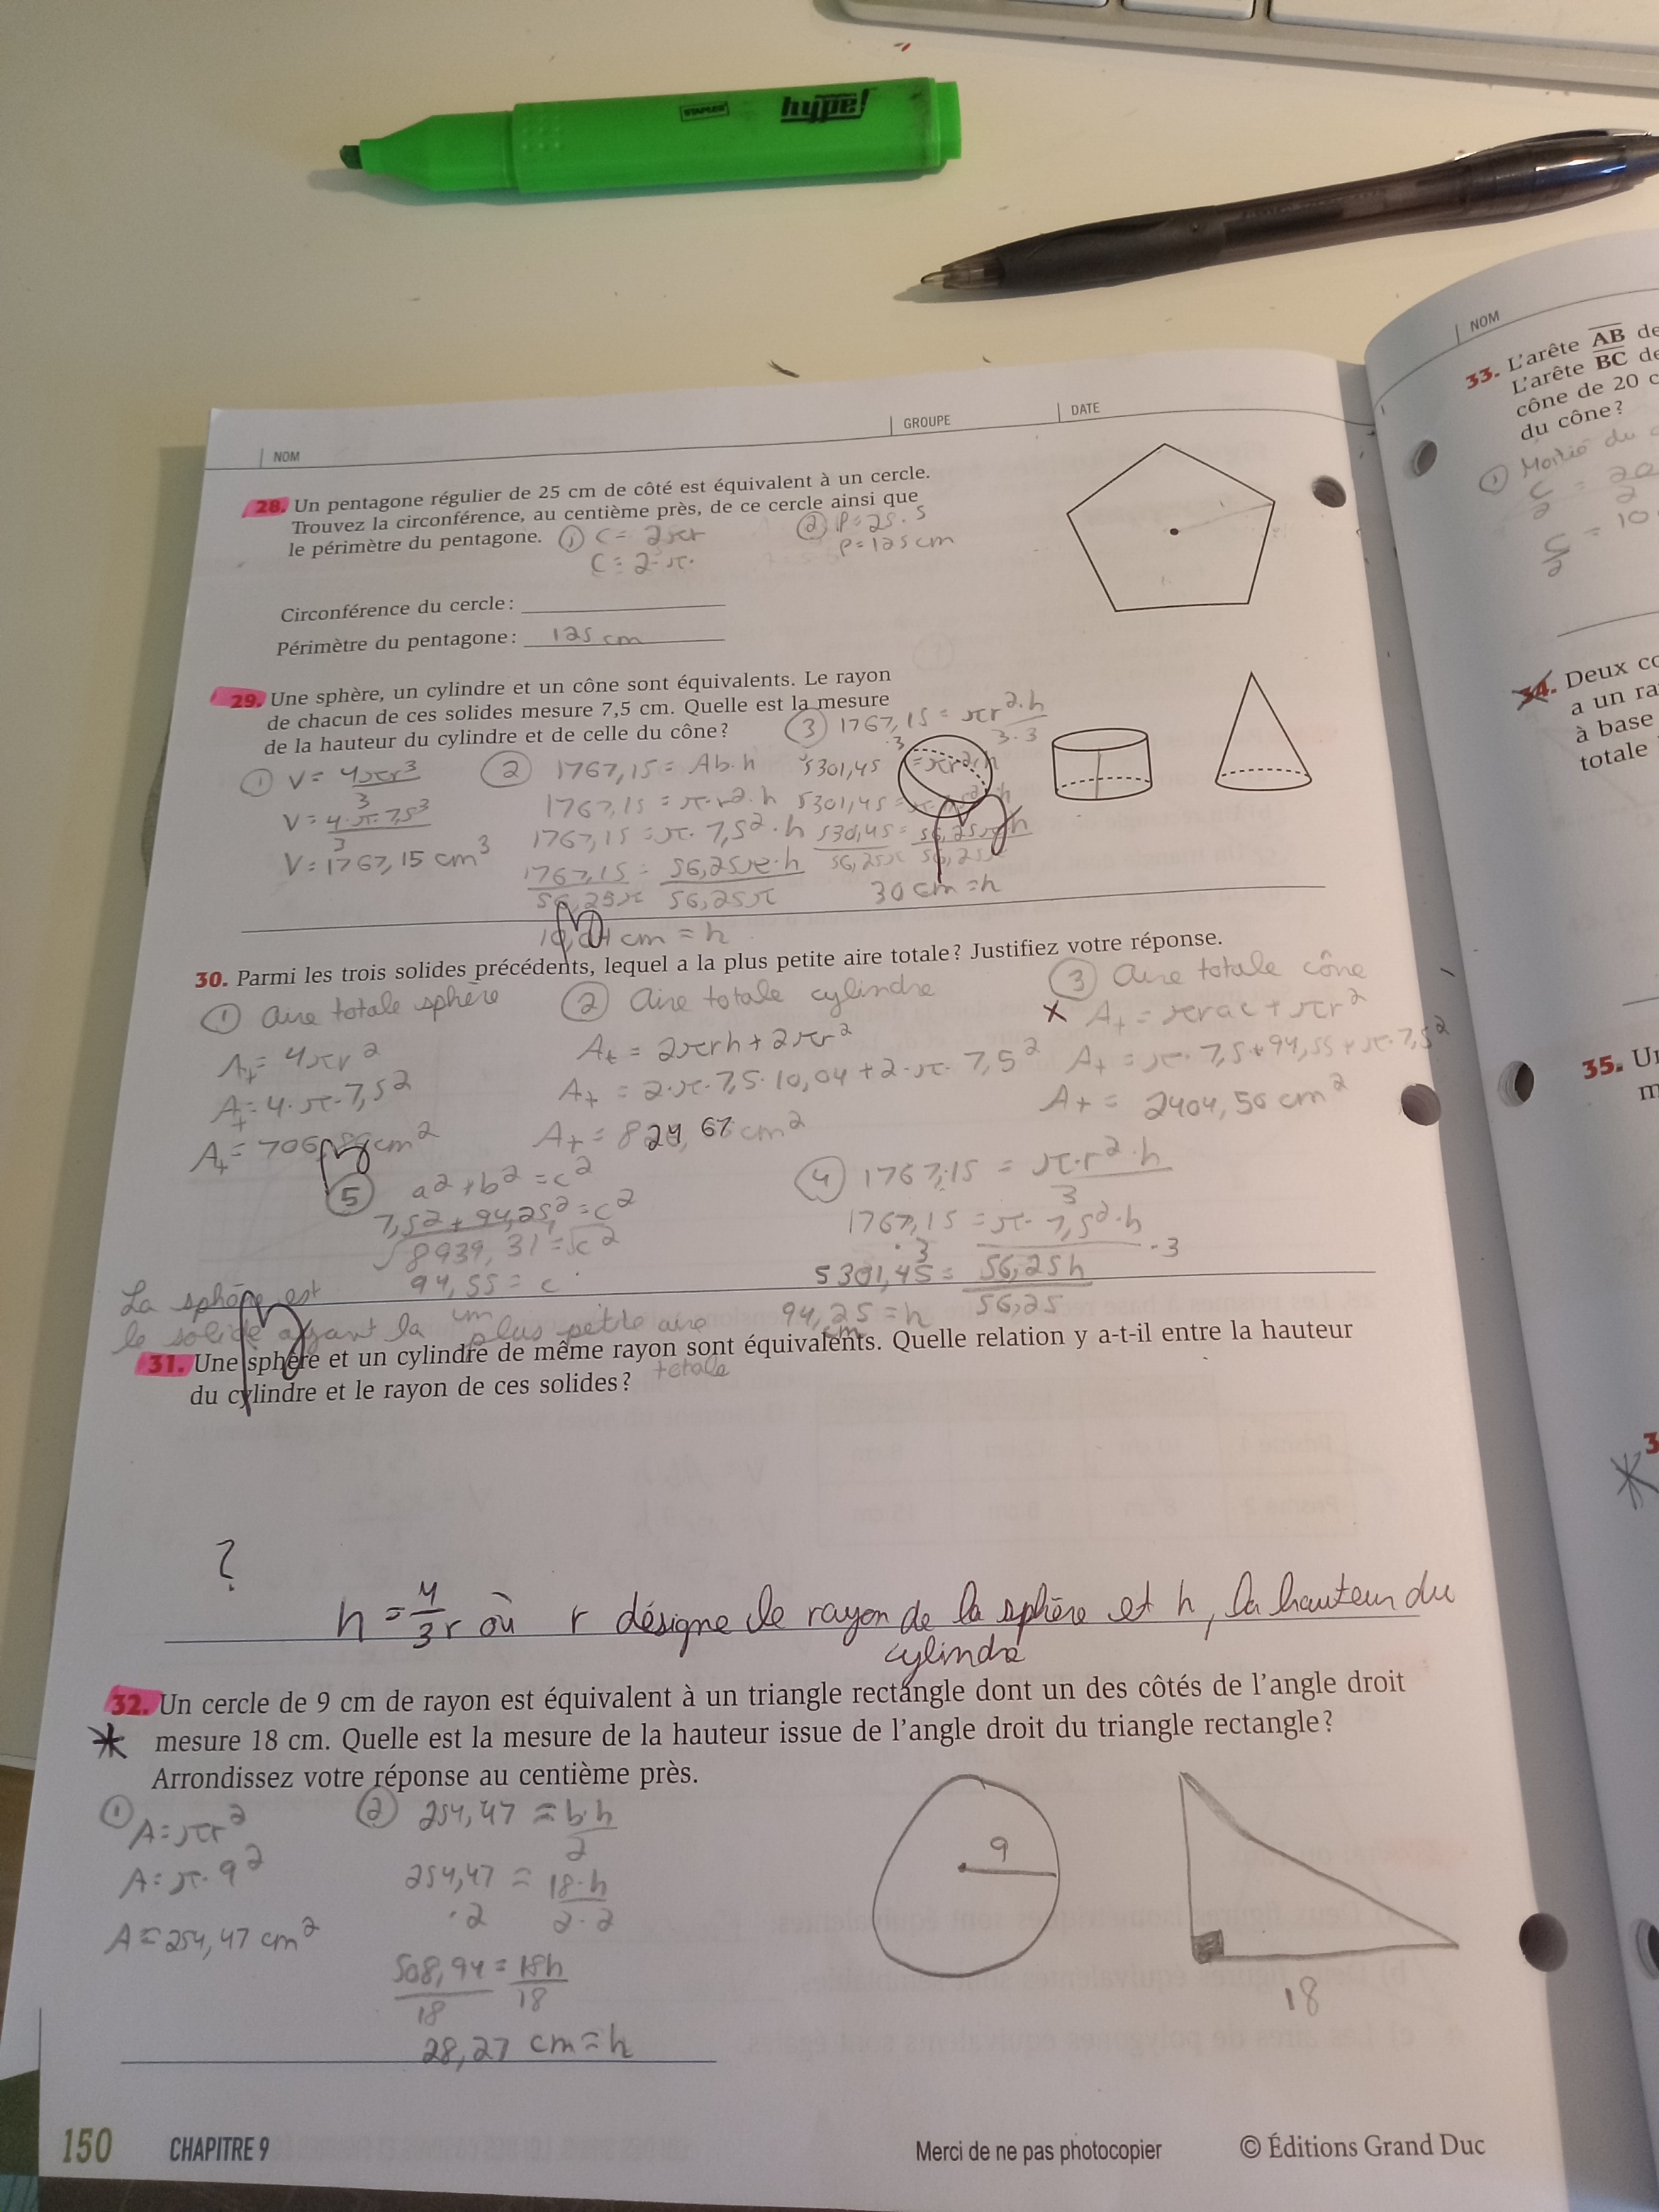 STAPLES hype!
NOM GROUPE DATE
28. Un pentagone régulier de 25 cm de côté est équivalent à un cercle.
Trouvez la circonférence, au centième près, de ce cercle ainsi que
le périmètre du pentagone.
① C = 2πr
C = 2·π·
② P = 25·5
P = 125 cm
Circonférence du cercle :
Périmètre du pentagone : 125 cm
29. Une sphère, un cylindre et un cône sont équivalents. Le rayon
de chacun de ces solides mesure 7,5 cm. Quelle est la mesure
de la hauteur du cylindre et de celle du cône ?
① V = 4πr³/3
V = 4·π·7,5³/3
V = 1767,15 cm³
② 1767,15 = Ab·h
1767,15 = π·r²·h
1767,15 = π·7,5²·h
1767,15/56,25π = 56,25π·h/56,25π
cm = h
③ 1767,15 ·3 = πr²·h/3 ·3
5301,45 = πr²·h
5301,45 =
530,45/56,25π = 56,25πh/56,25π
30 cm = h
30. Parmi les trois solides précédents, lequel a la plus petite aire totale ? Justifiez votre réponse.
① Aire totale sphère
At = 4πr²
At = 4·π·7,5²
At = 706, cm²
② Aire totale cylindre
At = 2πrh + 2πr²
At = 2·π·7,5·10,04 + 2·π·7,5²
At = 829,67 cm²
③ Aire totale cône
× At = πrac + πr²
At = π·7,5+94,55+π·7,5²
At = 2404,56 cm²
④ 1767,15 = π·r²·h/3
1767,15 ·3 = π·7,5²·h ·3
5301,45 = 56,25h/56,25
94,25 cm = h
⑤ a² + b² = c²
7,5² + 94,25² = c²
√8939,31 = √c²
94,55 = c
cm
La sphère est
le solide ayant la plus petite aire
totale
31. Une sphère et un cylindre de même rayon sont équivalents. Quelle relation y a-t-il entre la hauteur
du cylindre et le rayon de ces solides ?
?
h = 4/3 r où r désigne le rayon de la sphère et h, la hauteur du
cylindre
32. Un cercle de 9 cm de rayon est équivalent à un triangle rectangle dont un des côtés de l'angle droit
mesure 18 cm. Quelle est la mesure de la hauteur issue de l'angle droit du triangle rectangle ?
Arrondissez votre réponse au centième près.
① A = πr²
A = π·9²
A = 254,47 cm²
② 254,47 = b·h/2
254,47 ·2 = 18·h/2 ·2
508,94/18 = 18h/18
28,27 cm = h
9
18
150 CHAPITRE 9
Merci de ne pas photocopier © Éditions Grand Duc
NOM
33. L'arête AB de
L'arête BC de
cône de 20 c
du cône ?
① Moitié du
C/2 = 20/2
C/2 = 10
34. Deux co
a un ra
à base
totale
35. Un
m
3